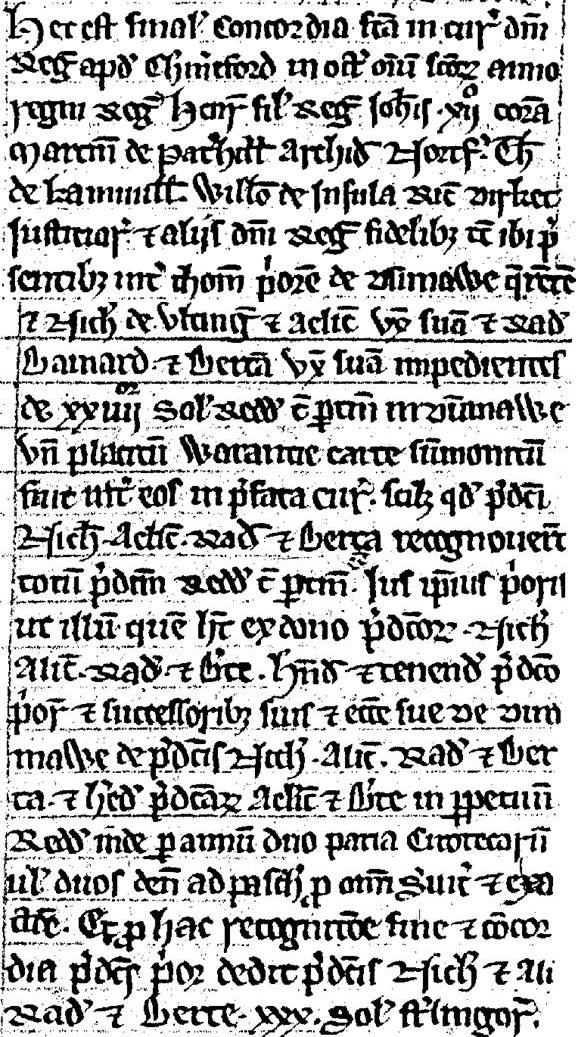 Hec est final' Concordia fc̄a in cur' dn̄i
Reg' apd' Chim'eford in oct' om̄ium sc̄oꝝ anno
regni Reg' Henr' fil' Reg' Joh'is xijº corā
Martin' de Pat'hill' Archid' Norf' Th'
de Kamuill' Will'o de Insula Ric'
Justiciar' ⁊ alijs dn̄i Reg' fidelibꝫ tc̄ ibi p'
sentibꝫ int' Thom' p'orē de q'rentē
⁊ Nich' de ⁊ Alic' vx' suā ⁊ Rad'
Bainard ⁊ Bertā vx' suā impedientes
de xxiiij sol' redd' c̄ ꝑtin' in
Vn' placitū Warantie carte sūmonitū
fuit int' eos in p'fata cur'. scil' qd' p'dc̄i
Nich'. Alic'. Rad' ⁊ Berta recognouer't
totū p'dc̄m redd' c̄ ꝑtin'. Jus ip̄ius p'oris
ut illū quē h't ex dono p'dc̄oꝝ. Nich'
Alic'. Rad' ⁊ B'te. hn̄d' ⁊ tenend' p'dc̄o
p'or' ⁊ successoribꝫ suis ⁊ ecc̄e sue de
mawe de p'dc̄is Nich'. Alic'. Rad' ⁊ Ber
ta. ⁊ h'ed' p'dc̄aꝝ Alic' ⁊ B'te in ꝑpetuū
Redd' inde ꝑ annū duo paria Cirotecarū
ul' duos den' ad pasch' ꝓ om̄i s'uic' ⁊ exa
cc̄õe. Et ꝓ hac recognic̄õe fine ⁊ cōcor
dia p'dc̄s p'or dedit p'dc̄is Nich' ⁊ Ali
Rad' ⁊ Berte. xxx. sol' st'lingor'.